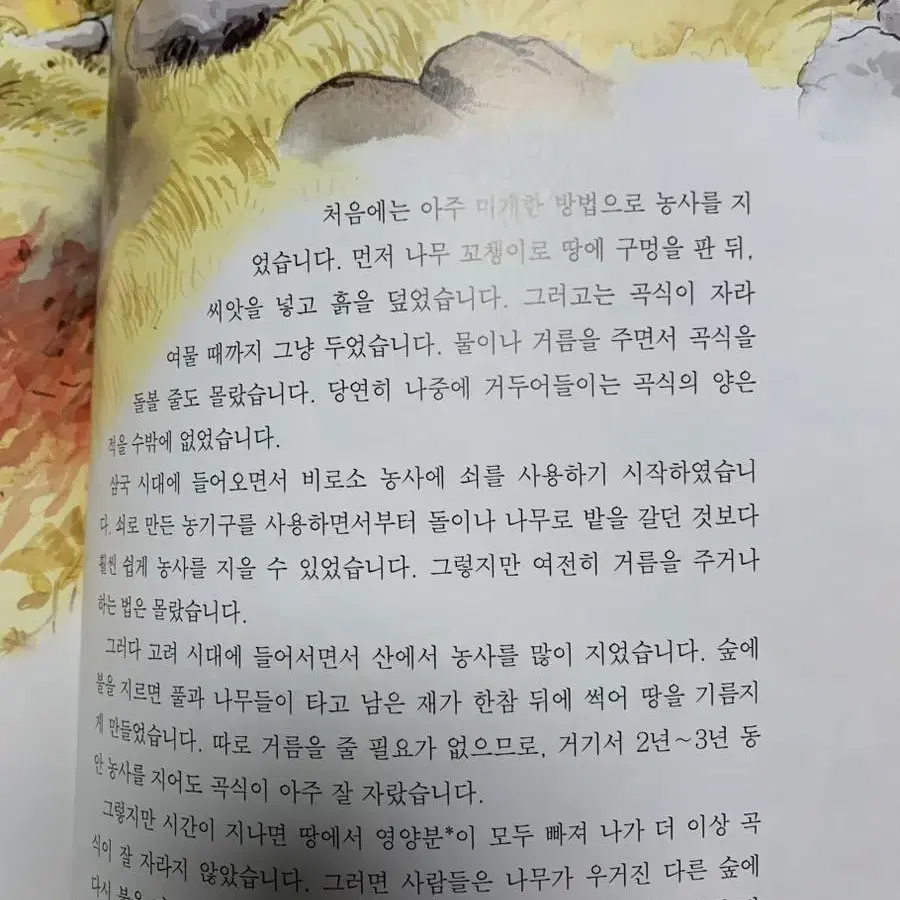 처음에는 아주 미개한 방법으로 농사를 지
었습니다. 먼저 나무 꼬챙이로 땅에 구멍을 판 뒤,
씨앗을 넣고 흙을 덮었습니다. 그러고는 곡식이 자라
여물 때까지 그냥 두었습니다. 물이나 거름을 주면서 곡식을
돌볼 줄도 몰랐습니다. 당연히 나중에 거두어들이는 곡식의 양은
적을 수밖에 없었습니다.
삼국 시대에 들어오면서 비로소 농사에 쇠를 사용하기 시작하였습니
다. 쇠로 만든 농기구를 사용하면서부터 돌이나 나무로 밭을 갈던 것보다
훨씬 쉽게 농사를 지을 수 있었습니다. 그렇지만 여전히 거름을 주거나
하는 법은 몰랐습니다.
그러다 고려 시대에 들어서면서 산에서 농사를 많이 지었습니다. 숲에
불을 지르면 풀과 나무들이 타고 남은 재가 한참 뒤에 썩어 땅을 기름지
게 만들었습니다. 따로 거름을 줄 필요가 없으므로, 거기서 2년~3년 동
안 농사를 지어도 곡식이 아주 잘 자랐습니다.
그렇지만 시간이 지나면 땅에서 영양분*이 모두 빠져 나가 더 이상 곡
식이 잘 자라지 않았습니다. 그러면 사람들은 나무가 우거진 다른 숲에
다시